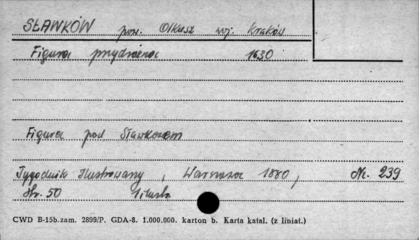 SŁAWKÓW pow. Olkusz woj. Kraków
Figura przydrożna 1630
Figura pod Sławkowem
Tygodnik Illustrowany, Warszawa 1880, Nr. 239
Str. 50
CWD B-15b.zam. 2899/P. GDA-8. 1.000.000. karton b. Karta katal. (z liniat.)